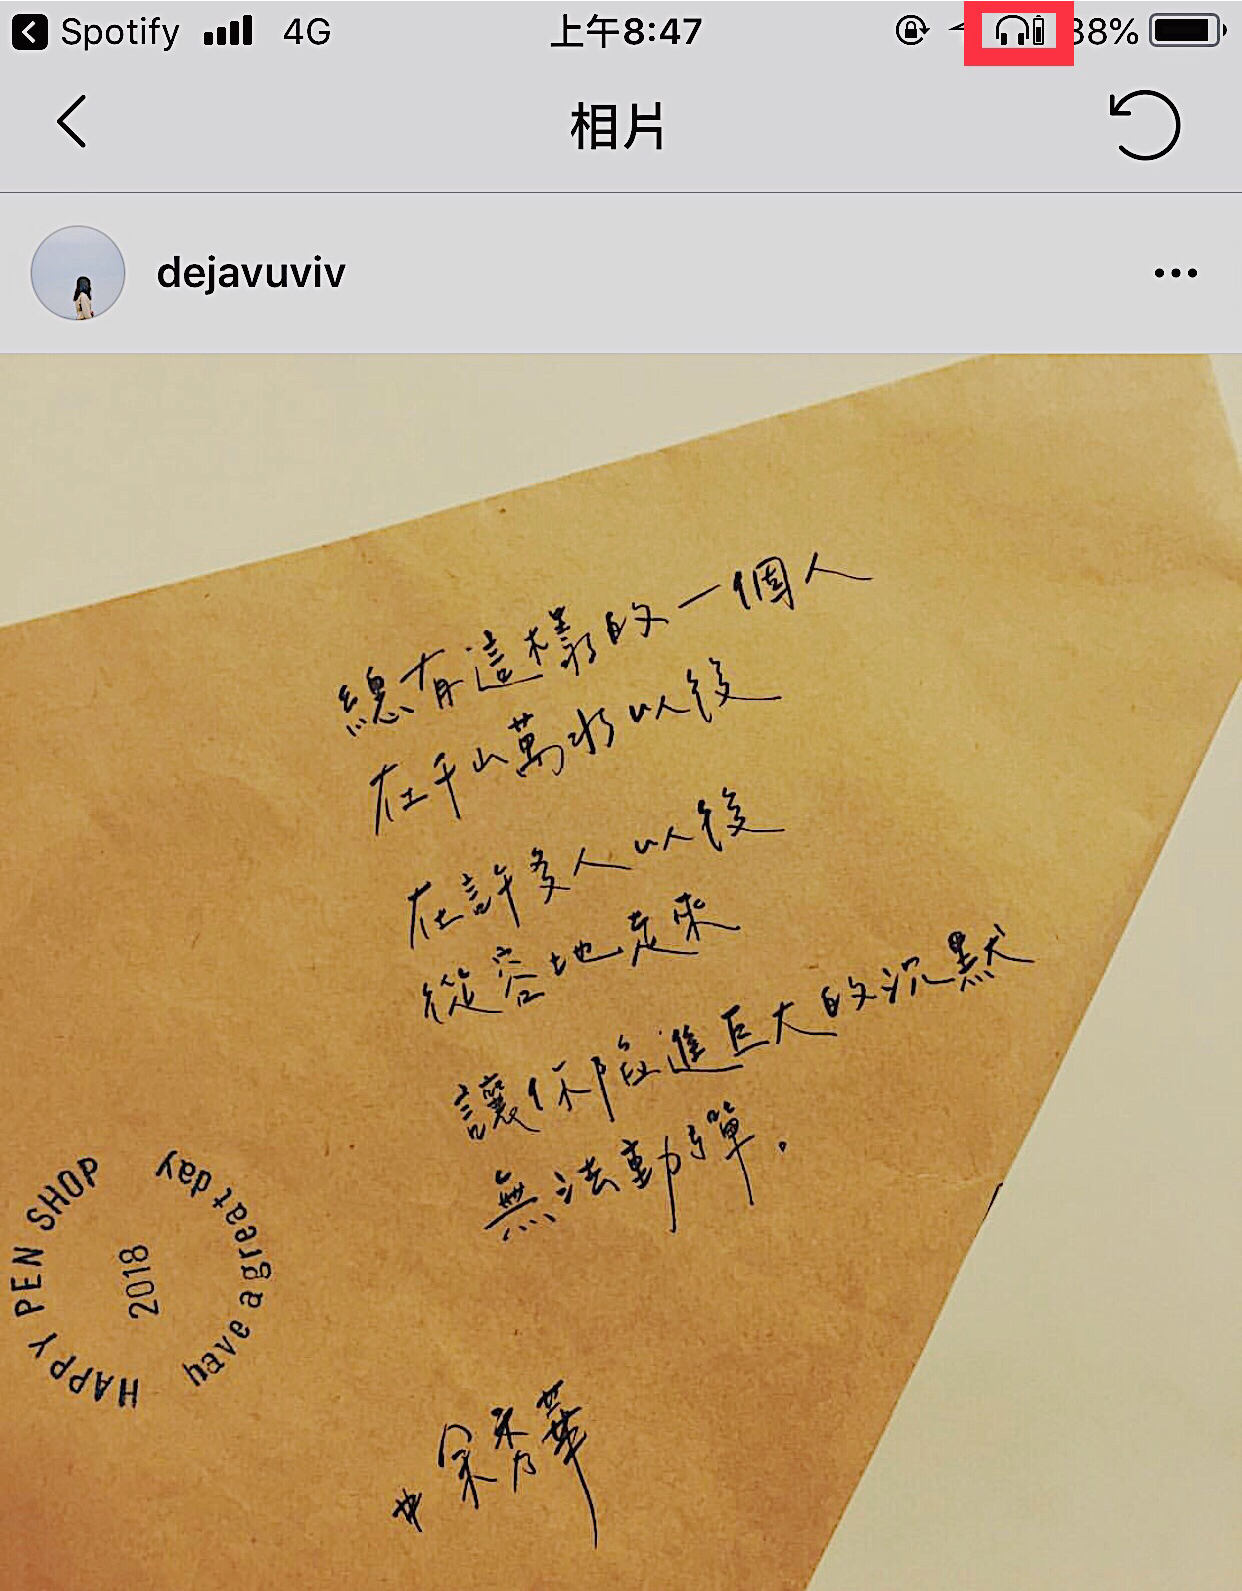 Spotify 4G 上午8:47 88%
相片
dejavuviv
總有這樣的一個人
在千山萬水以後
在許多人以後
從容地走來
讓你陷進巨大的沉默
無法動彈。
HAPPY PEN SHOP
2018
have a great day
余秀華